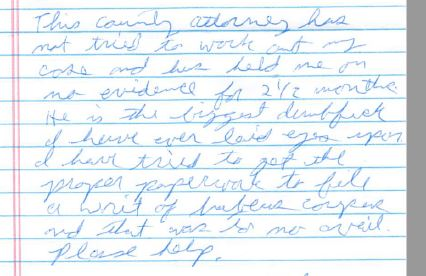 This county attorney has
not tried to work out my
case and has held me on
no evidence for 2 1/2 months.
He is the biggest dumbfuck
I have ever laid eyes upon.
I have tried to get the
proper paperwork to file
a writ of habeus corpus
and that was to no avail.
Please help.